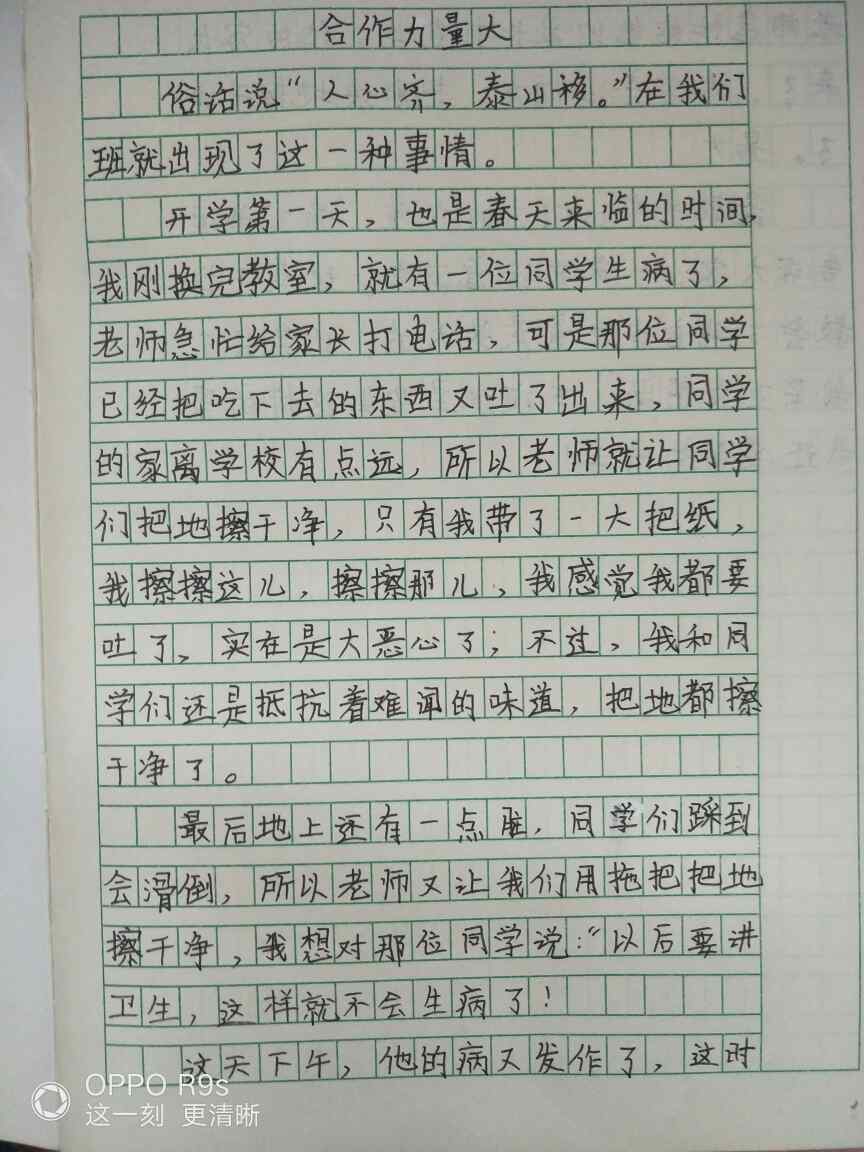 合作力量大
俗话说“人心齐，泰山移。”在我们
班就出现了这一种事情。
开学第一天，也是春天来临的时间，
我刚换完教室，就有一位同学生病了，
老师急忙给家长打电话，可是那位同学
已经把吃下去的东西又吐了出来，同学
的家离学校有点远，所以老师就让同学
们把地擦干净，只有我带了一大把纸，
我擦擦这儿，擦擦那儿，我感觉我都要
吐了，实在是大恶心了；不过，我和同
学们还是抵抗着难闻的味道，把地都擦
干净了。
最后地上还有一点脏，同学们踩到
会滑倒，所以老师又让我们用拖把把地
擦干净，我想对那位同学说：“以后要讲
卫生，这样就不会生病了！
这天下午，他的病又发作了，这时
OPPO R9s
这一刻 更清晰